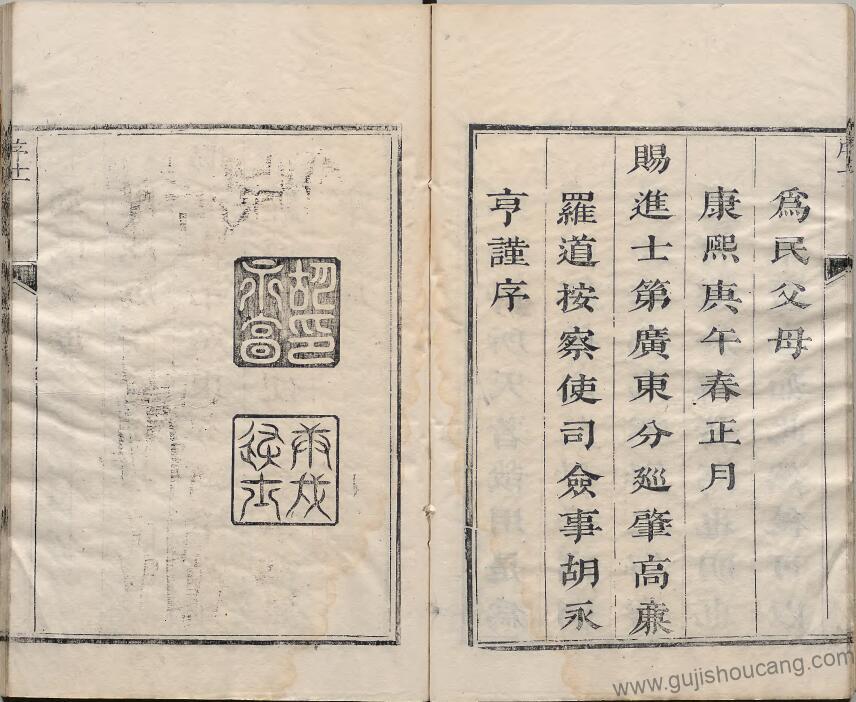 爲民父母
康熙庚午春正月
賜進士第廣東分巡肇高廉
羅道按察使司僉事胡永
亨謹序
胡印永亨
丙戌進士
序十一
www.gujishoucang.com